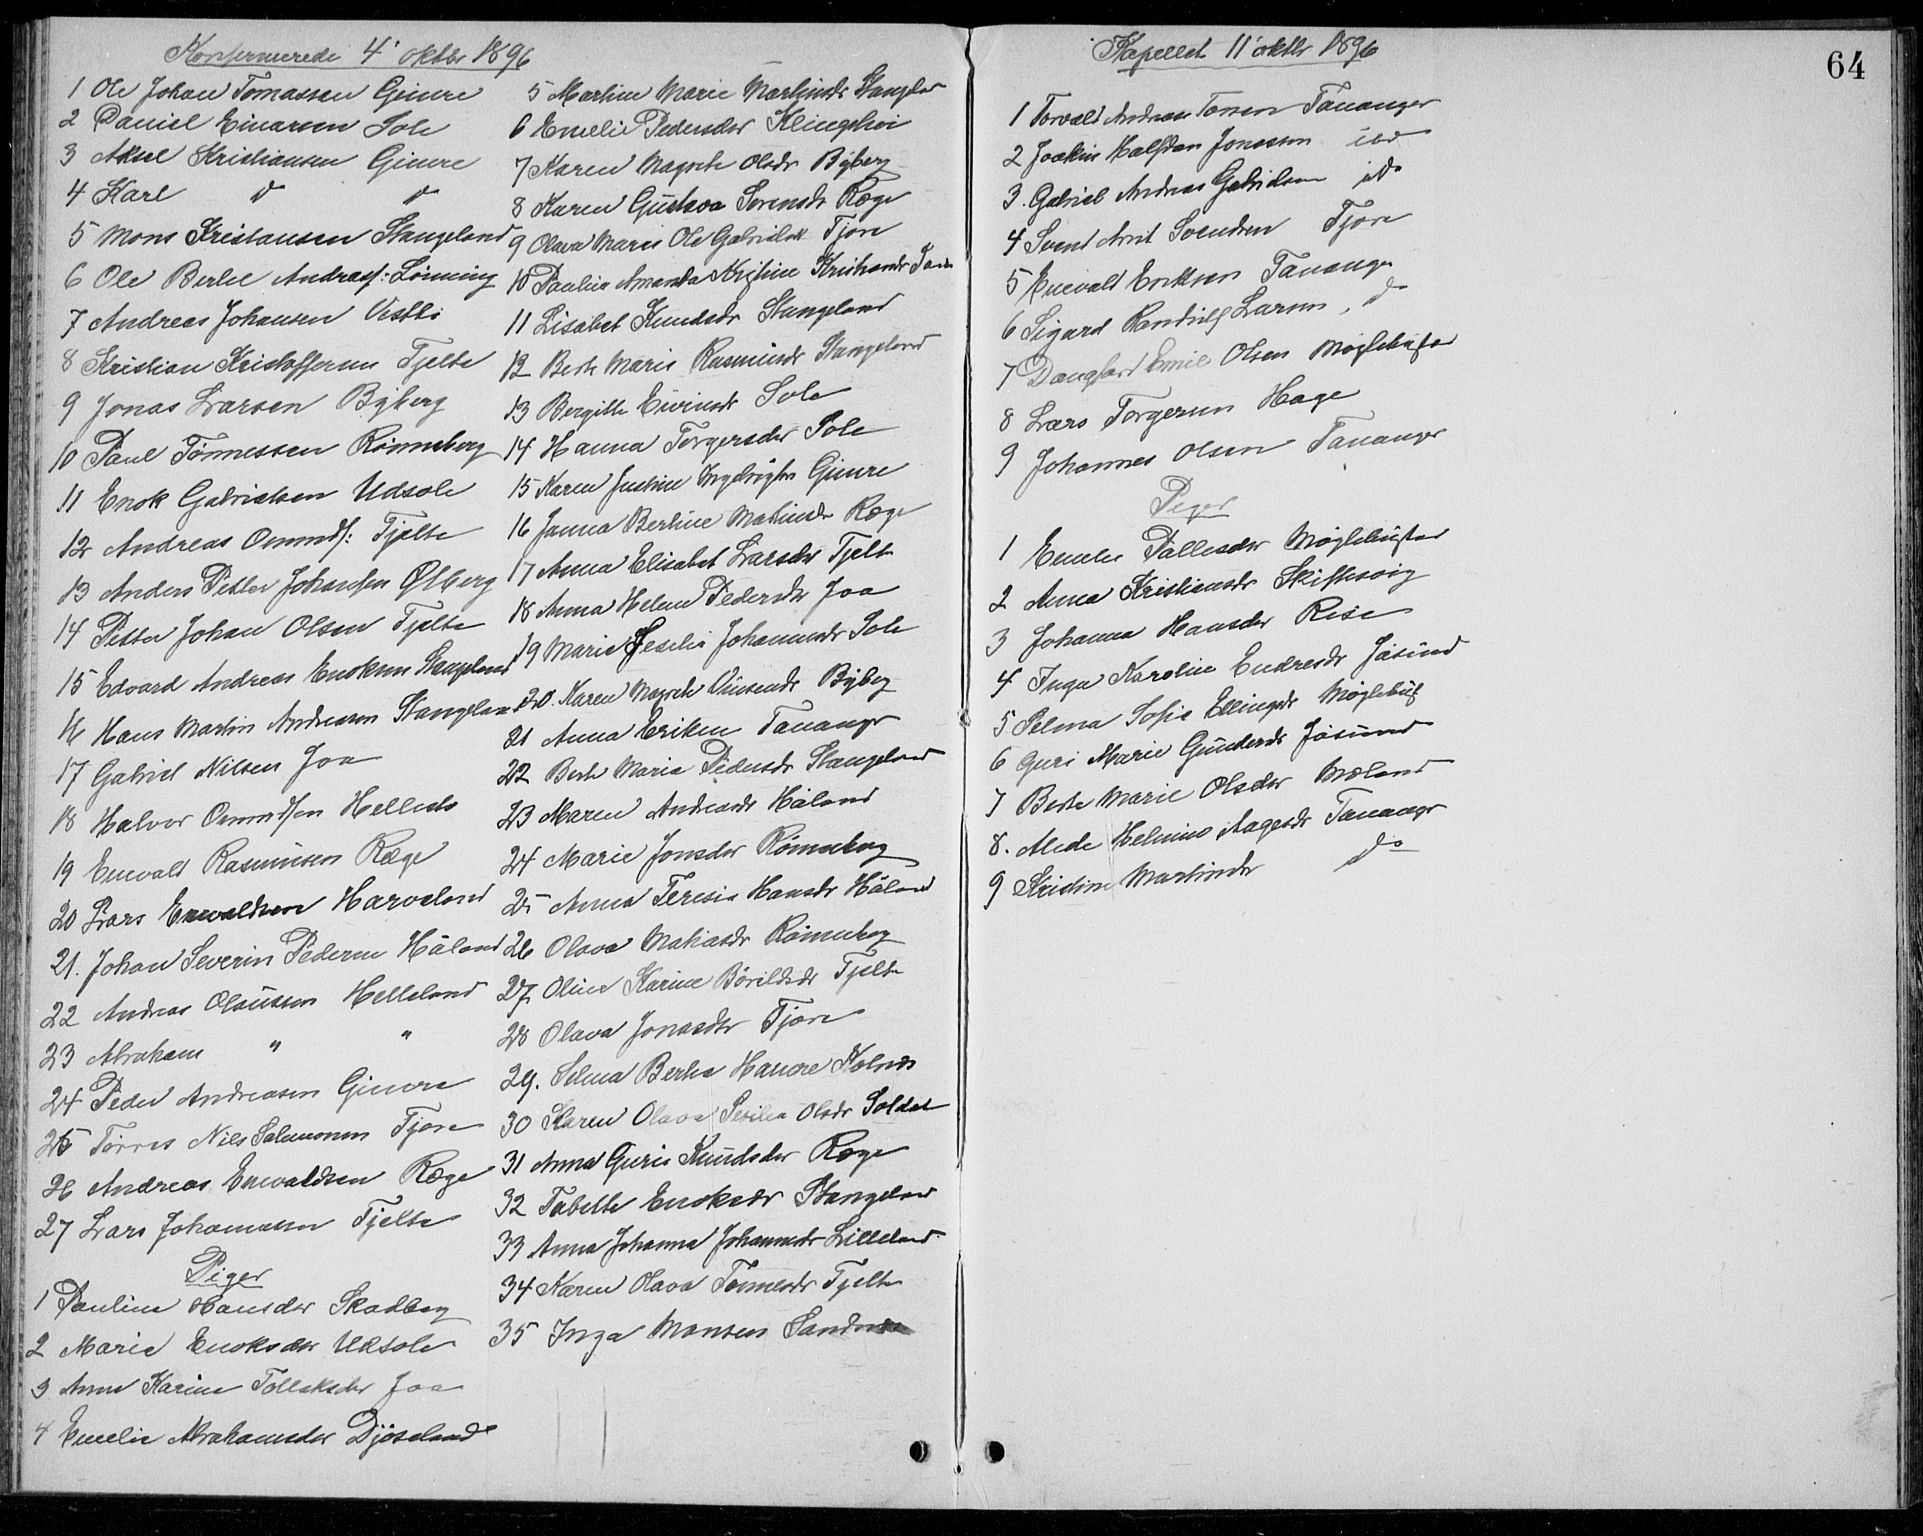 Konfirmerede 4' oktbr 1896
1 Ole Johan Tomassen Gimre
2 Daniel Einarsen Sole
3 Aksel Kristiansen Gimre
4 Karl d d
5 Mons Kristansen Stangeland
6 Ole Bertel Andreass: Lønning
7 Andreas Johansen Vestli
8 Kristian Kristoffersen Tjelte
9 Jonas Larsen Byberg
10 Paul Tönnessen Rönneberg
11 Enok Gabrielsen Udsole
12 Andreas Ommds: Tjelte
13 Anders Petter Johansen Ølberg
14 Petter Johan Olsen Tjelte
15 Edvard Andreas Enoksen Stangeland
16 Hans Martin Andreasen Stangeland
17 Gabriel Nilsen Joa
18 Halvor Ommdsen
19 Enevald Rasmusen Ræge
20 Lars Enevaldsen Harveland
21. Johan Severin Pedersen Håland
22 Andreas Olaussen Helleland
23 Abraham " "
24 Peder Andreasen Gimre
25 Tørres Nils Salomonsen Tjore
26 Andreas Enevaldsen Ræge
27 Lars Johannesen Tjelte
Piger
1 Pauline Hansdtr Skadberg
2 Marie Enoksdtr Udsole
3 Anne Karine Tollaksdtr Joa
4 Emelie Abrahamsdtr
5 Martine Marie Martinsdr Stangeland
6 Emelie Pedersdtr
7 Karen Magrete Olsdr Byberg
8 Karen Gustava Sørensdr Ræge
9 Olava Marie Ole Gabrielsd Tjore
10 Pauline Amanda Kristine Kristiansdr
11 Lisabet Knudsdr Stangeland
12 Berte Marie Rasmusdr Stangeland
13 Bergitte Eivinsdr Sole
14 Hanna Torgersdtr Sole
15 Karen Justine Gimre
16 Janna Bertine Matiasdr Ræge
17 Anna Elisabet Larsdtr Tjelte
18 Anna Helene Pedersdtr Joa
19 Marie Sesilie Johannesdr Sole
20. Karen Magrete Byberg
21 Anna Eriksen Tananger
22 Berte Maria Pedersdr Stangeland
23 Maren Andreasdr Håland
24 Marie Jonsdtr Rönneberg
25 Anna Teresia Hansdr Håland
26 Olava Matiasdr Rönneberg
27 Oline Karine Börildsdr Tjelte
28 Olava Jonasdtr Tjore
29. Selma Berte Hauore Kolnes
30 Karen Olava Sesilia Olsdr
31 Anna Guri Knudsdtr Ræge
32 Tabelte Enoksdtr Stangeland
33 Anna Johanna Johannesdr Lilleland
34 Karen Olava Tönnesdr Tjelte
35 Inga Monsen Sandnes
Kapellet 11' oktbr 1896
64
1 Torvald Andreas Tananger
2 Joakim Halfdan Jonassen
3. Gabriel Andreas Gabrielsen do
4 Svend Arnt Svendsen Tjore
5 Enevald Eriksen Tananger
6 Sigard Larsen, do
7 Emil Olsen Møglebust
8 Lars Torgersen Hage
9 Johannes Olsen Tananger
Piger
1 Emelie Pallesdtr Møglebust
2 Anna Kristiansdr Skiftesvig
3 Johanna Hansdtr Risa
4 Inga Karoline Endresdr Jåsund
5 Selma Sofie Ellingsdr Møglebust
6 Guri Marie Gundersdr Jåsund
7 Berte Marie Olsdtr Mæland
8. Helmine Aagesdr Tananger
9 Kristine Martinsdr do